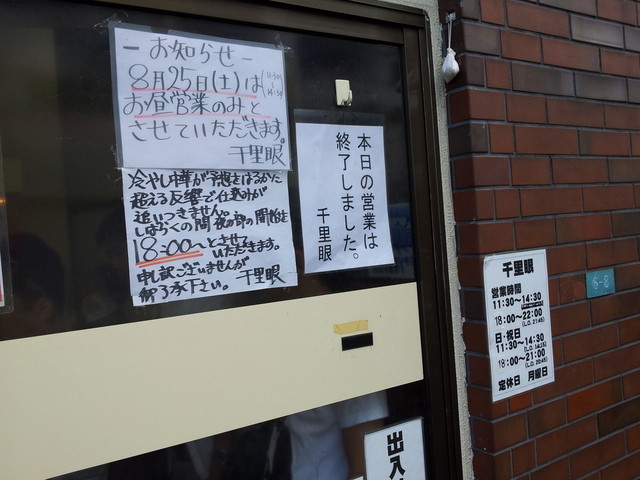 －お知らせ－
8月25日(土)は
お昼営業のみと
させていただきます。
千里眼
冷やし中華が予想をはるかに
超える反響で仕込みが
追いつきません。
しばらくの間 夜の部の開始を
18:00〜とさせて
いただきます。
申し訳ございませんが
御了承下さい。 千里眼
本日の営業は
終了しました。
千里眼
千里眼
営業時間
11:30〜14:30
18:00〜22:00
(L.O. 21:45)
日・祝日
11:30〜14:30
18:00〜21:00
(L.O. 20:45)
定休日 月曜日
出入